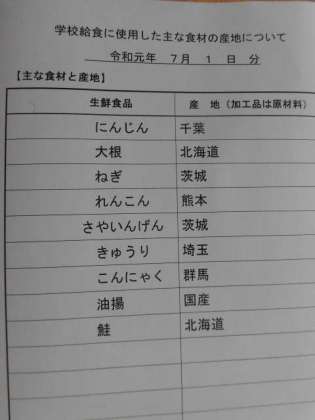 学校給食に使用した主な食材の産地について
令和元年 7月 1 日 分
【主な食材と産地】
生鮮食品 産 地（加工品は原材料）
にんじん 千葉
大根 北海道
ねぎ 茨城
れんこん 熊本
さやいんげん 茨城
きゅうり 埼玉
こんにゃく 群馬
油揚 国産
鮭 北海道